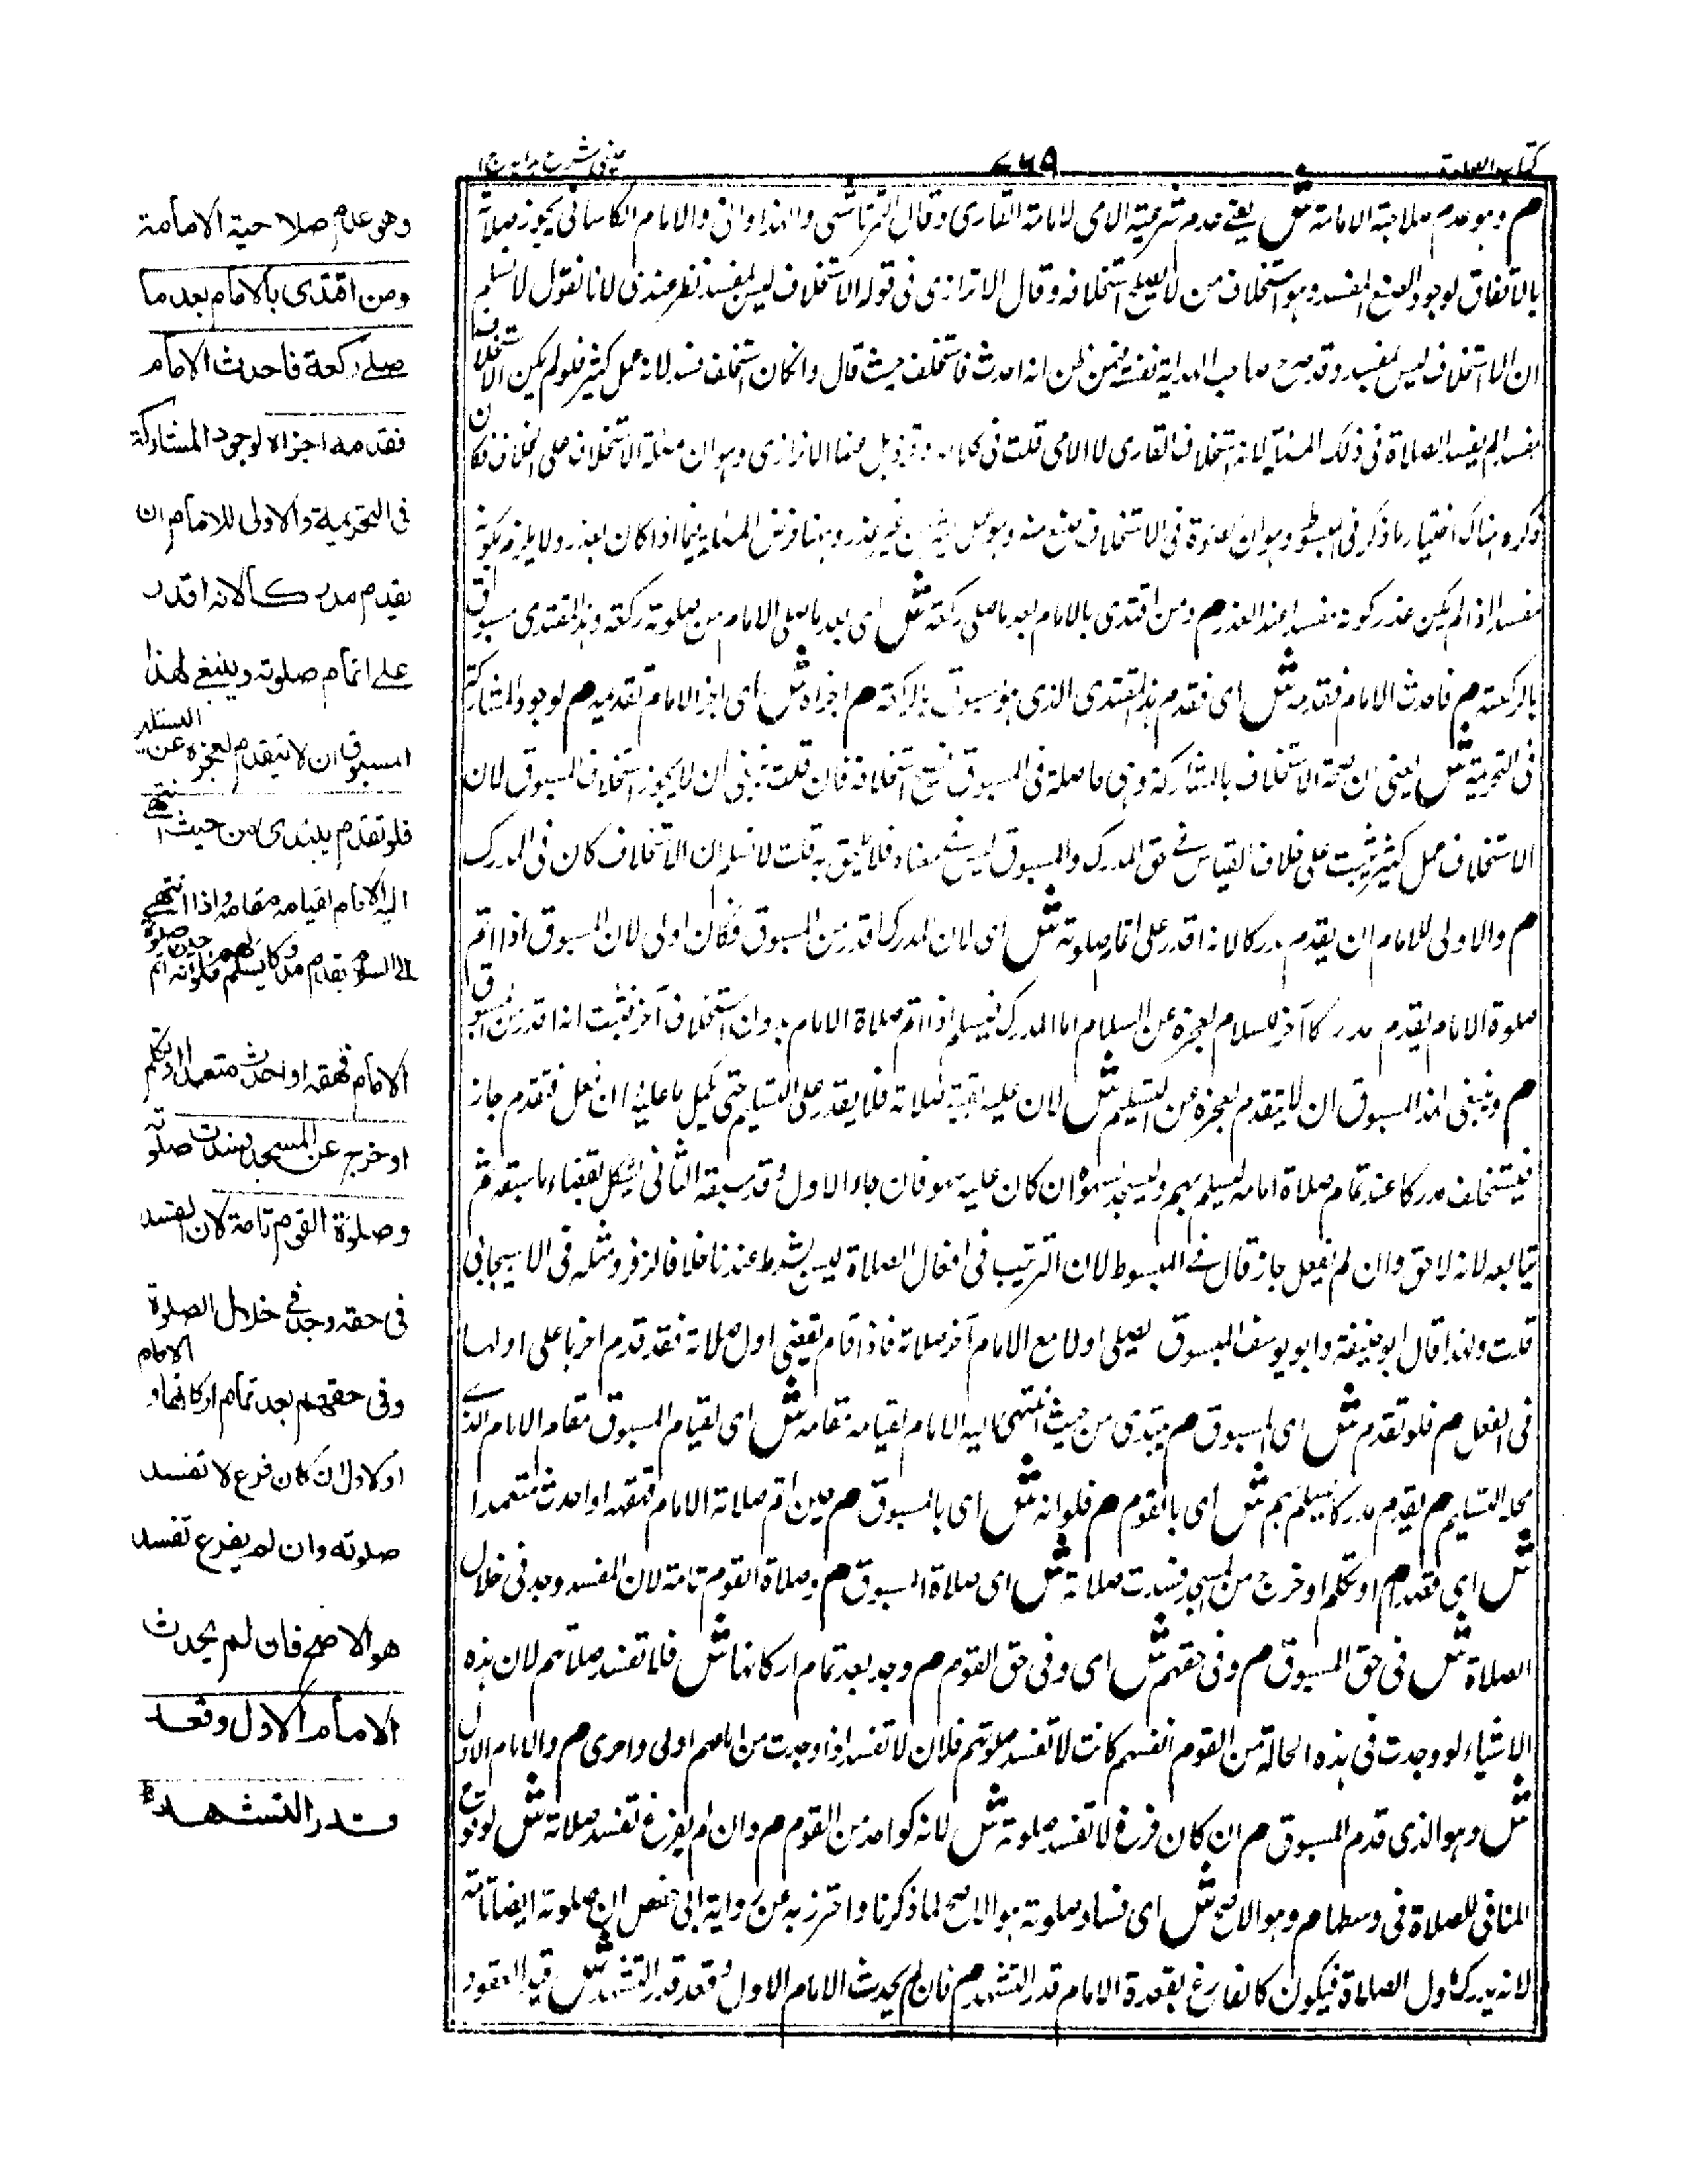 كتاب الصلوة
٧٦٩
عينى شرح هدايه ج ١
م وهو عدم صلاحية الامامة ش يعنى عدم شرعية الامى لامامة القارى وقال التمرتاشى والهنداوانى والامام الكاسانى يجوز صلاته
بالاتفاق لوجود الصنع المفسد وهو استخلاف من لا يصلح استخلافه وقال الاترازى فى قوله الاستخلاف ليس بمفسد نظر عندى لانا نقول لا نسلم
ان الاستخلاف ليس بمفسد وقد صرح صاحب الهداية نفسه فيمن ظن انه احدث فاستخلف حيث قال وان كان استخلف فسد لانه عمل كثير فلو لم يكن الاستخلاف
مفسدا لم يفسد الصلاة فى ذلك المسئلة لانه استخلاف القارى لا الامى قلت فى كلامه وقد ذهل منها الاترازى وهو ان مسئلة الاستخلاف على الخلاف فكان
ذكره هناك اختيار ما ذكر فى المبسوط وهو ان عنده فى الاستخلاف صنع منه وهو عمل كثير من غير عذر وهنا فرض المسئلة فيما اذا كان بعذر ولا يلزم بكونه
مفسدا اذا لم يكن عذر كونه مفسدا عند العذر م ومن اقتدى بالامام بعد ما صلى ركعة ش اى بعد ما صلى الامام من صلوته ركعة وهذا المقتدى مسبوق
بالركعة م فاحدث الامام فقدمه ش اى فقدم هذا المقتدى الذى هو مسبوق بالركعة م اجزاه ش اى اجزا الامام تقديمه م لوجود المشاركة
فى التحريمة ش يعنى ان صحة الاستخلاف بالمشاركة وهى حاصلة فى المسبوق فيصح استخلافه فان قلت ينبغى ان لا يجوز استخلاف المسبوق لان
الاستخلاف عمل كثير ثبت على خلاف القياس فى حق المدرك والمسبوق ليس فى معناه فلا يلحق به قلت لا نسلم ان الاستخلاف كان فى المدرك
م والاولى للامام ان يقدم مدركا لانه اقدر على اتمام صلوته ش اى لان المدرك اقدر من المسبوق فكان اولى لان المسبوق اذا اتم
صلوة الامام يقدم مدركا آخر للسلام لعجزه عن السلام اما المدرك فيسلم اذا اتم صلاة الامام بدون استخلاف آخر فثبت انه اقدر من المسبوق
م وينبغى لهذا المسبوق ان لا يتقدم لعجزه عن التسليم ش لان عليه بقية صلاته فلا يقدر على التسليم حتى يكمل ما عليه اان فعل فتقدم جاز
فيستخلف مدركا عند تمام صلاة امامه ليسلم بهم وليسجد لسهوه ان كان عليه سهو فان جاء الاول وقد سبقه الثانى بشكل بقضاء ما سبقه ثم
يتابعه لانه لاحق وان لم يفعل جاز قال فى المبسوط لان الترتيب فى افعال الصلاة ليس بشرط عندنا خلافا لزفر ومثله فى الاسبيجابى
قلت ولهذا قال ابو حنيفة وابو يوسف المسبوق يصلى اولا مع الامام آخر صلاته فاذا قام يقضى اول صلاته فقد قدم آخرها على اولها
فى الفعل م فلو تقدم ش اى المسبوق م يبتدى من حيث انتهى اليه الامام لقيامه مقامه ش اى لقيام المسبوق مقام الامام الذى
محل التسليم م يقدم مدركا يسلم بهم ش اى بالقوم م فلو انه ش اى بالمسبوق م حين اتم صلاة الامام قهقه او احدث متعمدا
ش اى فقدم م او تكلم او خرج من المسجد فسدت صلاته ش اى صلاة المسبوق م وصلاة القوم تامة لان المفسد وجد فى خلال
الصلاة ش فى حق المسبوق م وفى حقهم ش اى وفى حق القوم م وجد بعد تمام اركانها ش فلا تفسد صلاتهم لان هذه
الاشياء لو وجدت فى هذه الحالة من القوم انفسهم كانت لا تفسد صلوتهم فلان لا تفسد اذا وجدت من امامهم اولى واحرى م والامام الاول
ش وهو الذى قدم المسبوق م ان كان فرغ لا تفسد صلوته ش لانه كواحد من القوم م وان لم يفرغ تفسد صلاته ش لوقوع
المنافى للصلاة فى وسطها م وهو الاصح ش اى فساد صلوته هو الاصح لما ذكرنا واحترز به عن رواية ابى حفص ان صلوته ايضا تامة
لانه يدرك اول الصلاة فيكون كالفارغ بقعدة الامام قدر التشهد م فان لم يحدث الامام الاول وقعد قدر التشهد ش قيد القعود
وهو عدم صلاحية الامامة
ومن اقتدى بالامام بعد ما
صلے ركعة فاحدث الامام
فقدمه اجزاه لوجود المشاركة
فى التحريمة والاولى للامام ان
يقدم مدركا لانه اقدر
على اتمام صلوته وينبغى لهذا
المسبوق ان لا يتقدم لعجزه عن التسليم
فلو تقدم يبتدى من حيث انتهى
اليه الامام لقيامه مقامه واذا انتهى
الى السلام يقدم مدركا يسلم بهم فلو انه حين اتم صلوة
الامام قهقه او احدث متعمدا او تكلم
او خرج عن المسجد فسدت صلوته
وصلوة القوم تامة لان المفسد
فى حقه وجد فى خلال الصلوة
وفى حقهم بعد تمام اركانها والامام
الاول ان كان فرغ لا تفسد
صلوته وان لم يفرغ تفسد
هو الاصح فان لم يحدث
الامام الاول وقعد
قدر التشهد